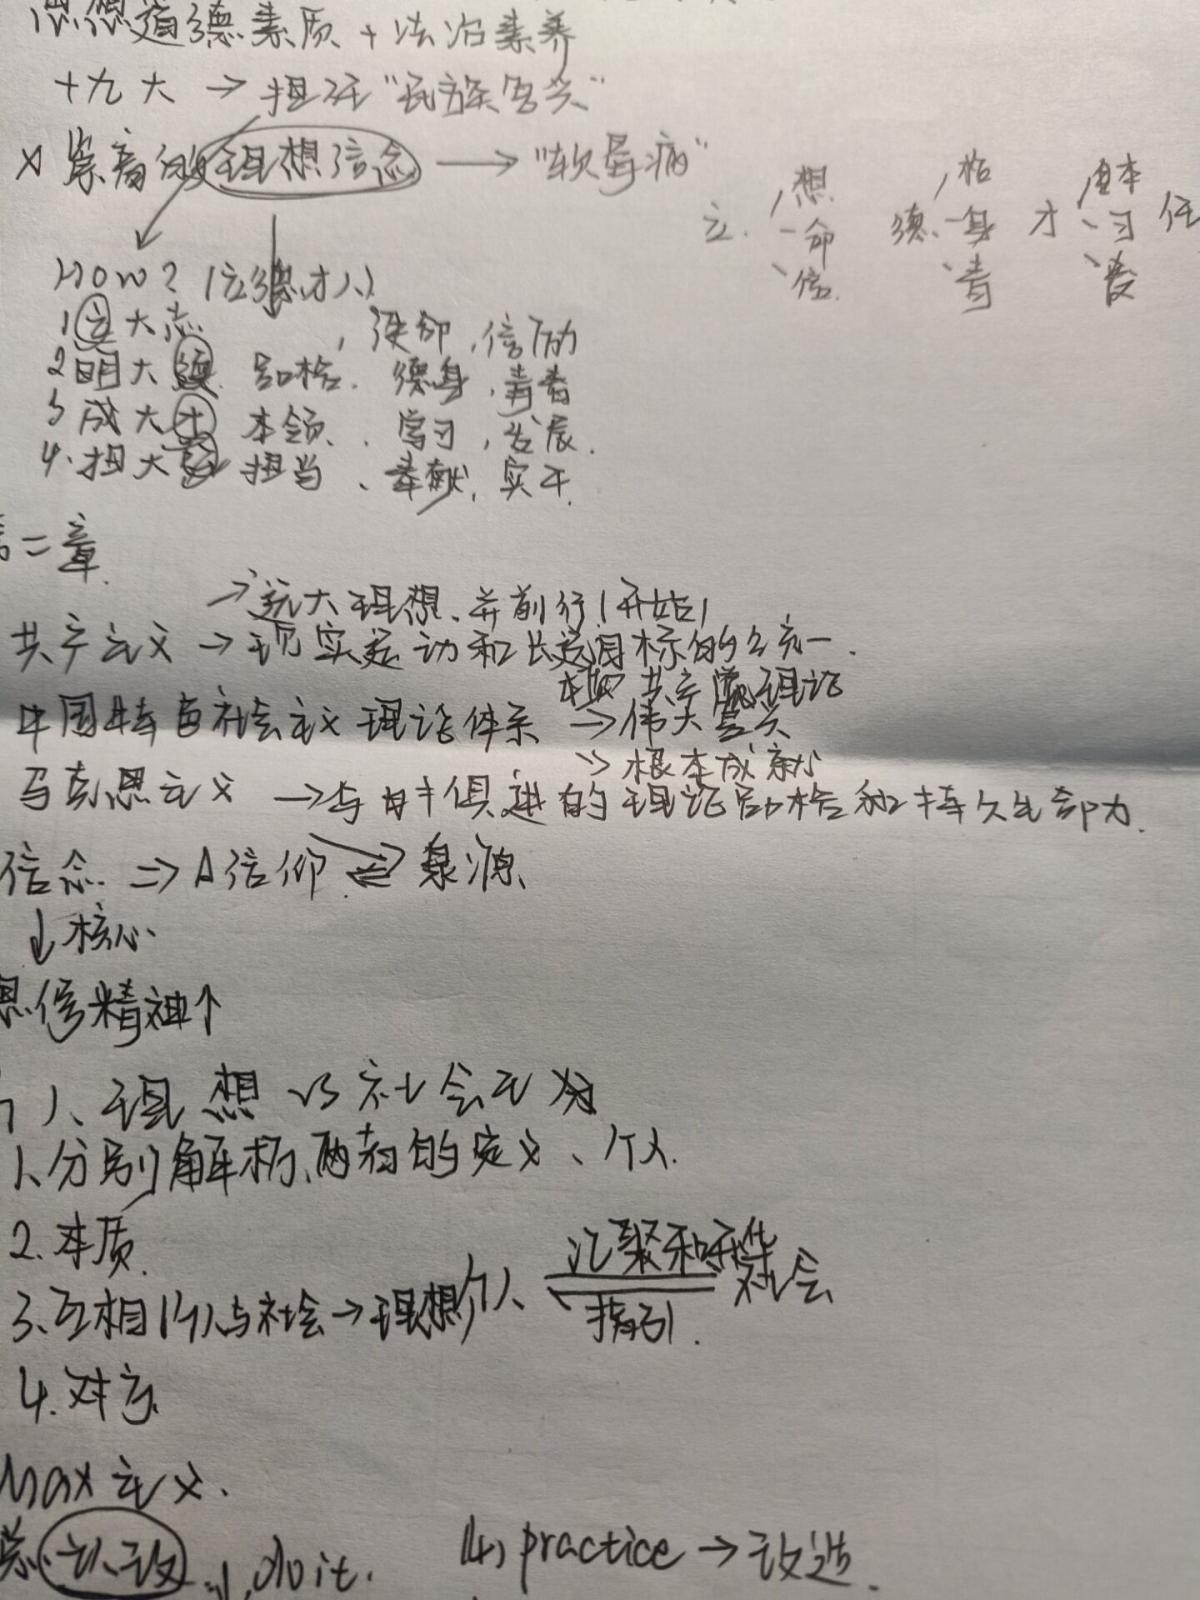 思想道德素质+法治素养
十九大→担任"民族复兴"
崇高的理想信念→"软骨病"
立. 想 命 信 德. 格 身 青 才 本 习 发 任
How?(立德才人)
1立大志. 使命,信励
2明大德. 品格. 德身,青春
3成大才 本领. 学习,发展.
4.担大任 担当、奉献,实干
第二章.
→远大理想、并前行(开始)
共产主义→现实运动和长远目标的统一.
共产 理论
中国特色社会主义理论体系→伟大复兴
→根本成就
马克思主义→与时俱进的理论品格和持久生命力.
信念.⇒A信仰 泉源
↓核心.
思修精神个
人、理想 VS 社会主义
1、分别解析,两者的定义、个人.
2.本质.
3、互相(个人与社会→理想 个人 汇聚和升华 指引. 社会
4.对应
Max主义.
认识 do it. (4) practice→改造.